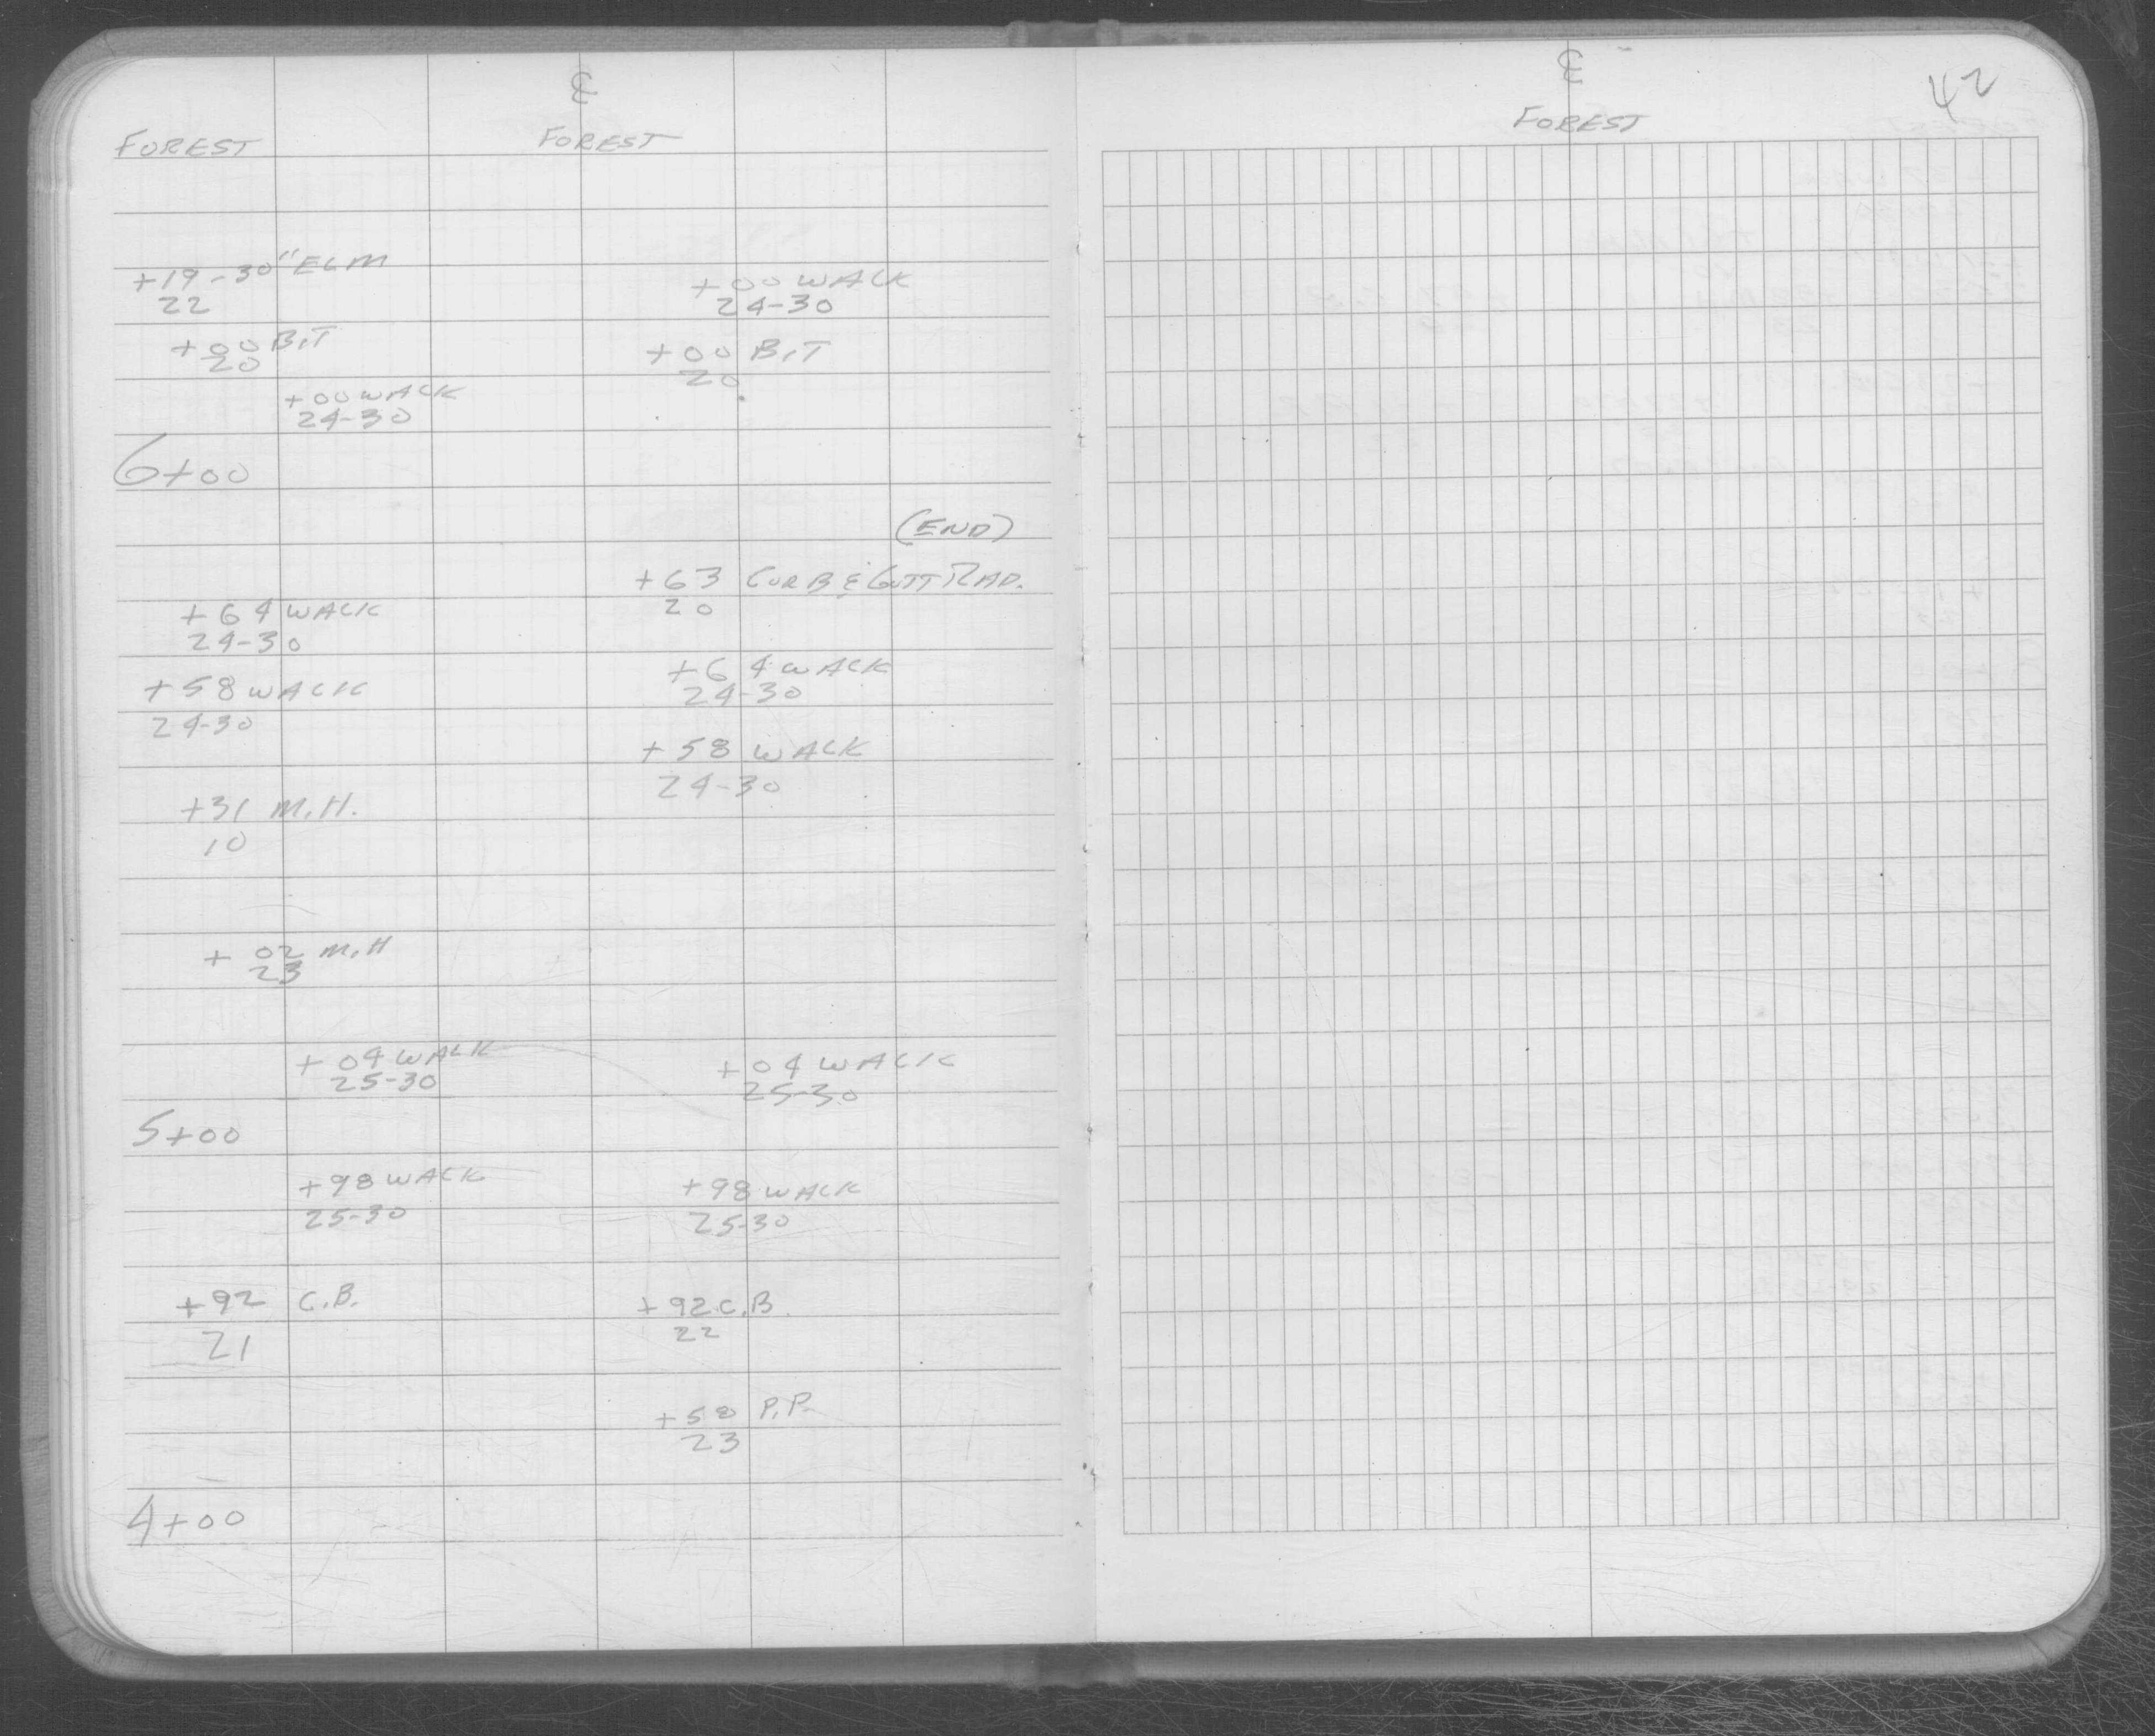 ℄
FOREST FOREST
+19-30" ELM
22
+00 WALK
24-30
+00 BIT
20
+00 BIT
20
+00 WALK
24-30
6+00
(END)
+63 CURB & GUTT RAD.
20
+64 WALK
24-30
+64 WALK
24-30
+58 WALK
24-30
+58 WALK
24-30
+31 M.H.
10
+02 M.H
23
+04 WALK
25-30
+04 WALK
25-30
5+00
+98 WALK
25-30
+98 WALK
25-30
+92 C.B.
21
+92 C.B.
22
+58 P.P.
23
4+00
℄
FOREST
42